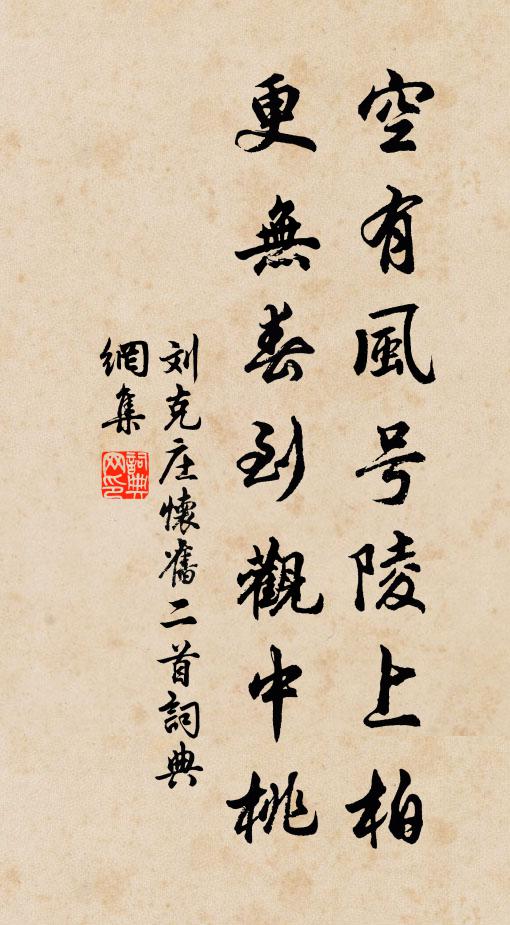 空有風号陵上柏
更無春到觀中桃
刘克庄懷舊二首詞典
網集
詞典網印